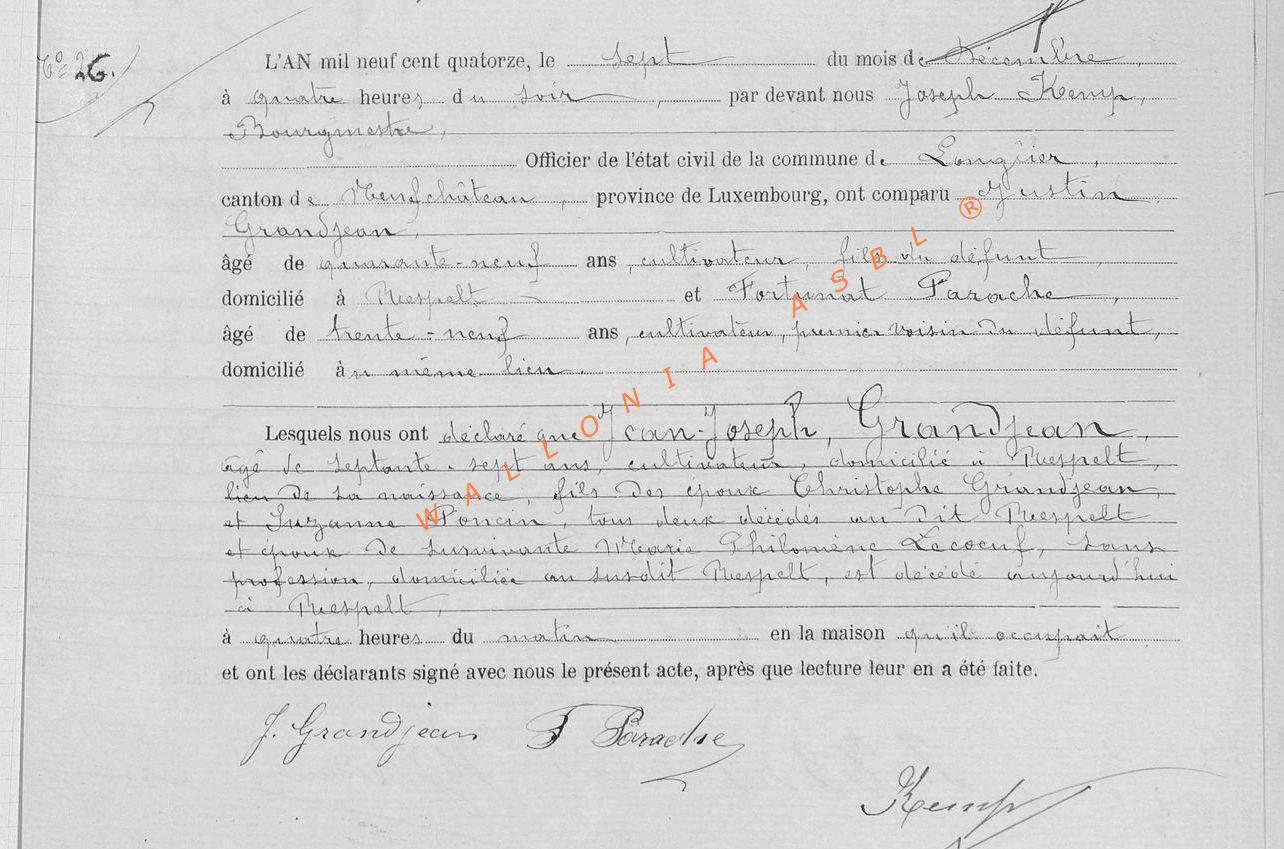 N° 26.
L'AN mil neuf cent quatorze, le sept du mois de Décembre,
à quatre heures du soir, par devant nous Joseph Kemp,
Bourgmestre,
Officier de l'état civil de la commune de Longlier,
canton de Neufchâteau, province de Luxembourg, ont comparu Justin
Grandjean,
âgé de quarante-neuf ans, cultivateur, fils du défunt,
domicilié à Respelt et Fortunat Parache,
âgé de trente-neuf ans, cultivateur, premier voisin du défunt,
domicilié à même lieu.
Lesquels nous ont déclaré que Jean-Joseph, Grandjean,
âgé de septante-sept ans, cultivateur, domicilié à Respelt,
lieu de sa naissance, fils des époux Christophe Grandjean,
et Suzanne Poncin, tous deux décédés au dit Respelt
et époux de survivante Marie Philomène Lecoeuf, sans
profession, domiciliée au susdit Respelt, est décédé aujourd'hui
à Respelt,
à quatre heures du matin en la maison qu'il occupait
et ont les déclarants signé avec nous le présent acte, après que lecture leur en a été faite.
J. Grandjean F Parache
Kemp
WALLONIA ASBL ®